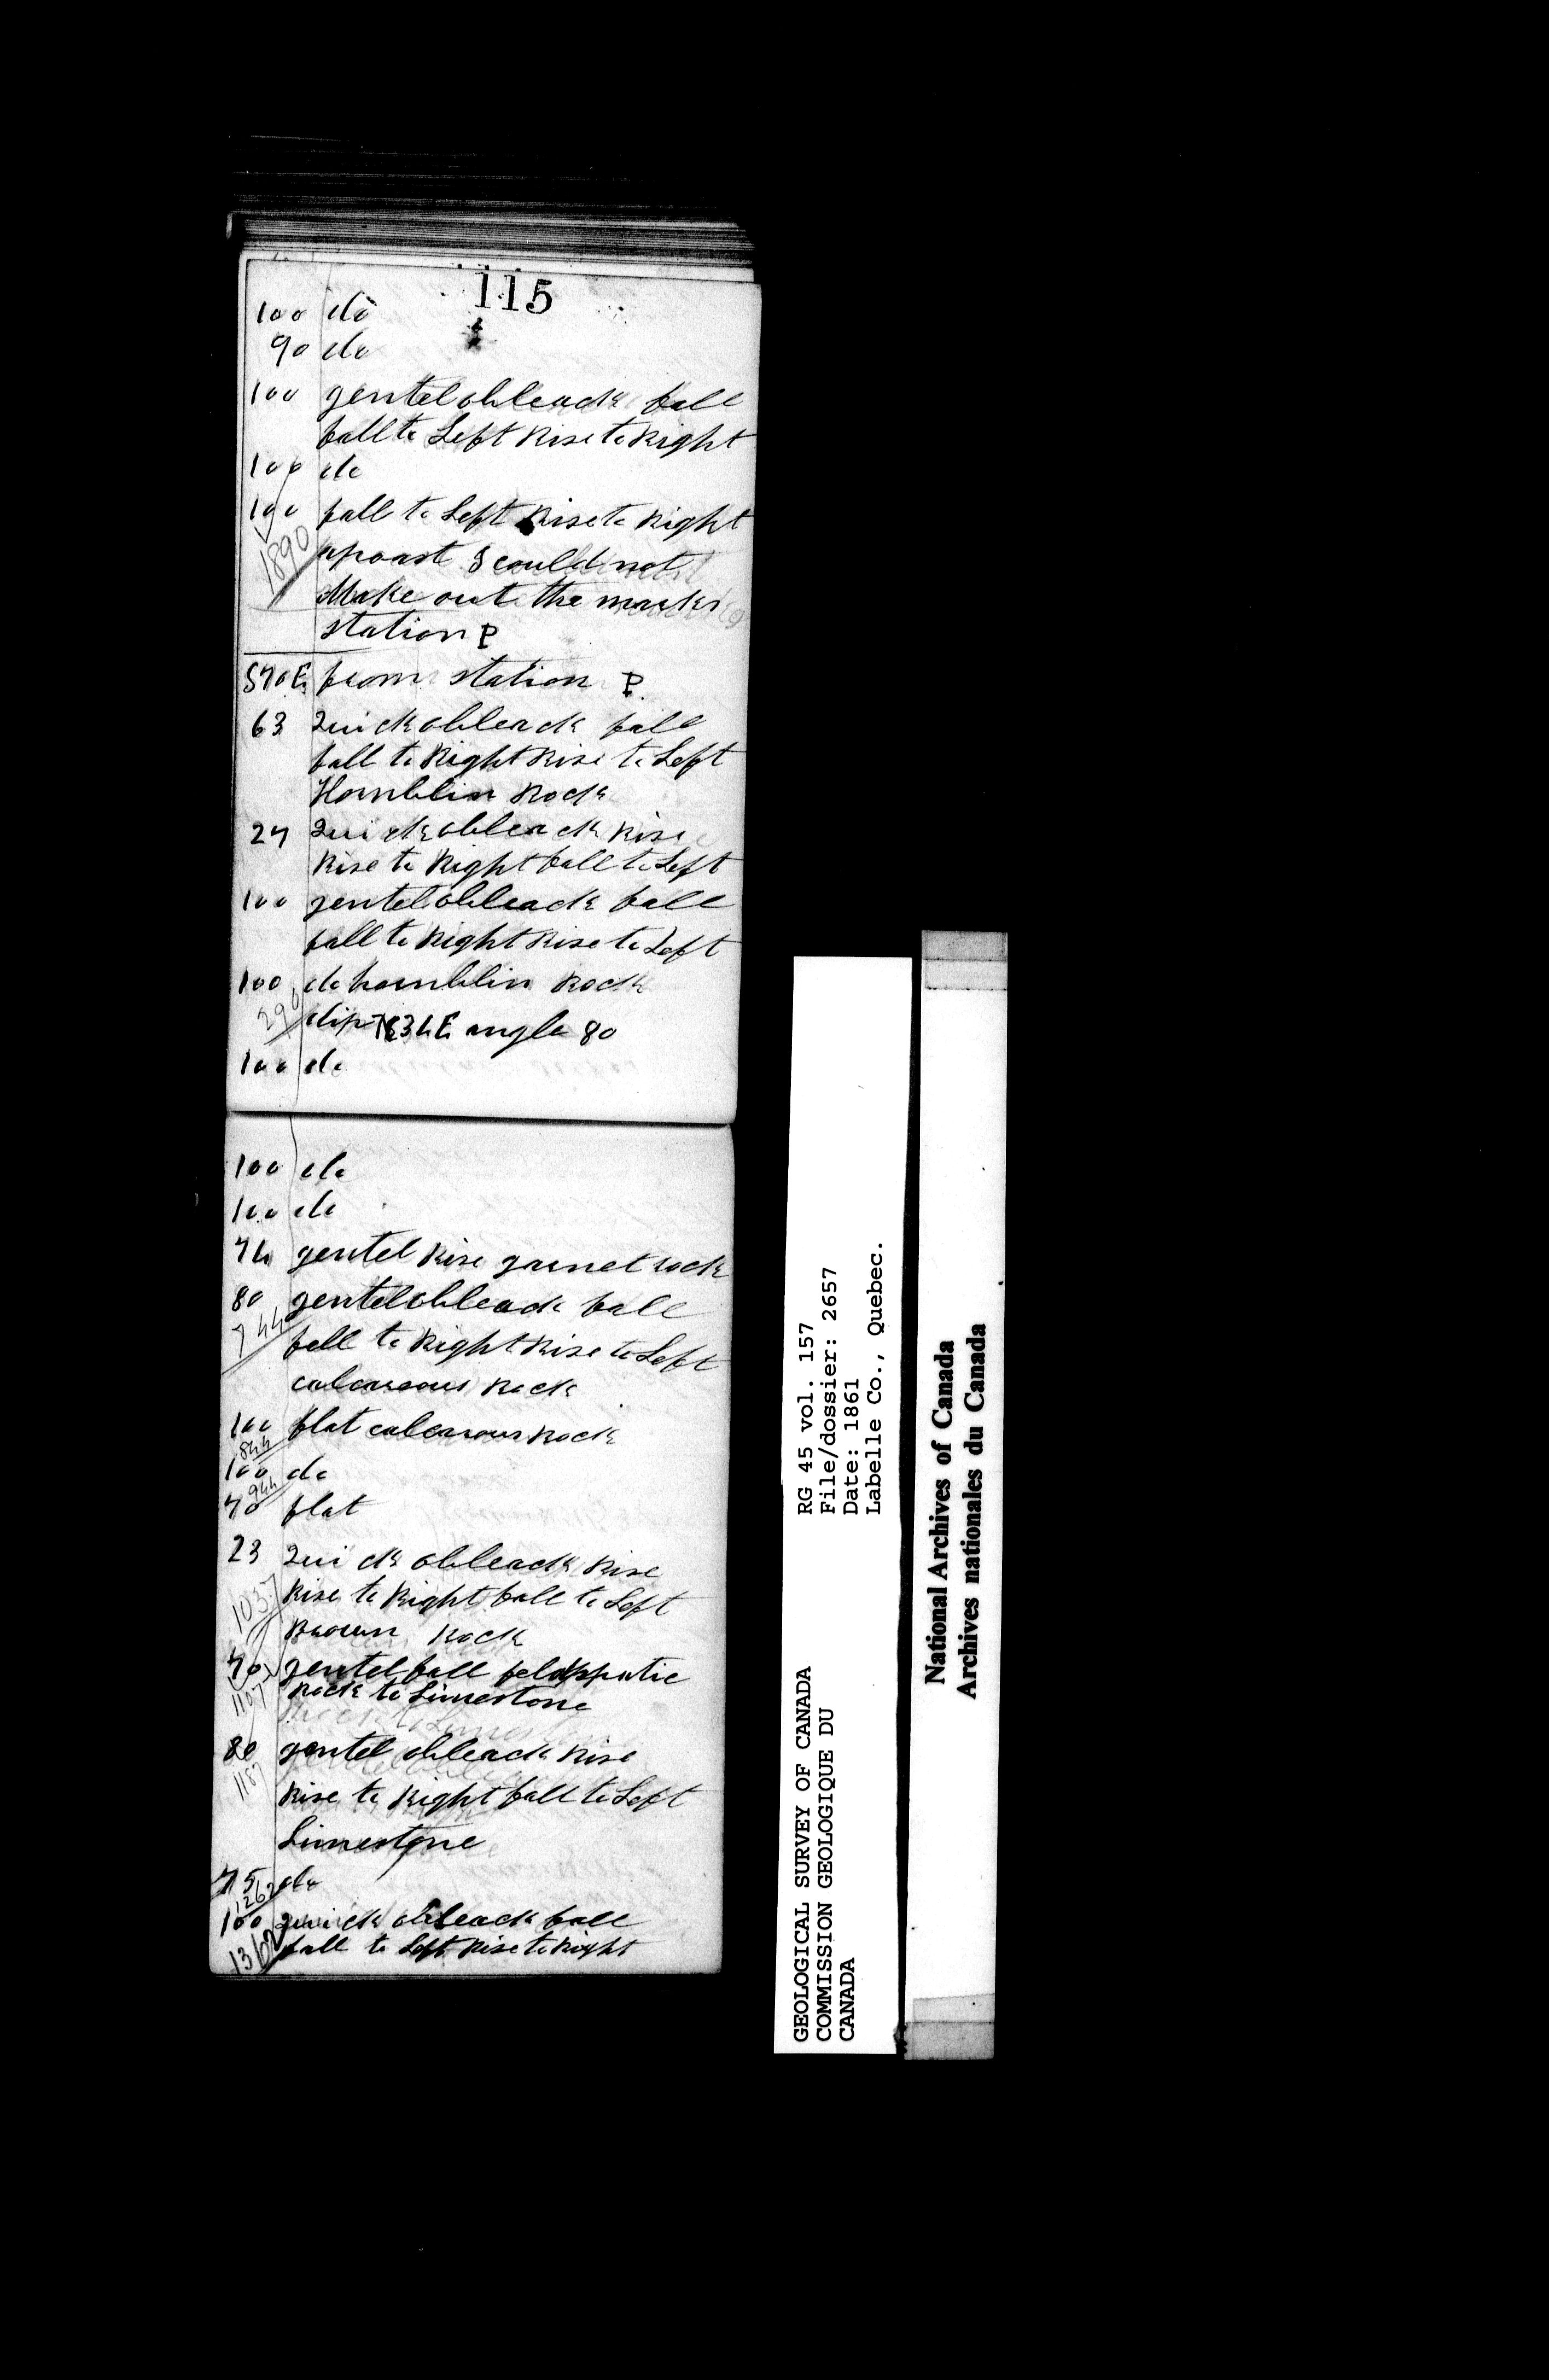 115
100 do
90 do
100 gentel obleack fall
fall to Left Rise to Right
100 do
100 fall to Left Rise to Right
1890 apoast I could not
Make out the marks
station P
S70E from station P
63 Quick obleack fall
fall to Right Rise to Left
Hornblin Rock
27 Quick obleack Rise
Rise to Right fall to Left
100 gentel obleack fall
fall to Right Rise to Left
100 do hornblin Rock
290 dip angle 80
100 do
100 do
100 do
74 gentel Rise garnet rock
80 gentel obleack fall
744 fall to Right Rise to Left
calcareous Rock
100 flat calcarous Rock
844
100 do
944
70 flat
23 Quick obleack Rise
1037 Rise to Right fall to Left
Brown Rock
70 gentel fall feldspatic
1107 Rock to Limestone
80 gentel obleack Rise
1187
Rise to Right fall to Left
Limestone
75 do
1262
100 Quick obleack fall
1362 fall to Left Rise to Right
GEOLOGICAL SURVEY OF CANADA
COMMISSION GEOLOGIQUE DU
CANADA
RG 45 vol. 157
File/dossier: 2657
Date: 1861
Labelle Co., Quebec.
National Archives of Canada
Archives nationales du Canada